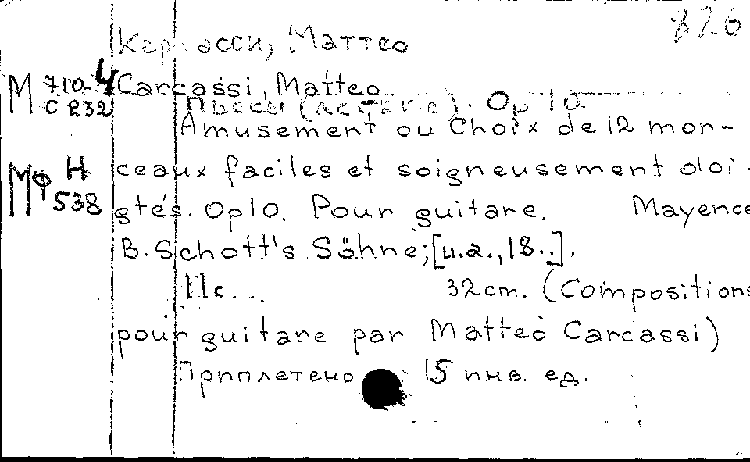 826
Каркасси, Маттео
М 710-4 Carcassi, Matteo
С Р232 Пьесы (легкие). Op 10
Amusement ou Choix de 12 mor-
Мф Н 538 ceaux faciles et soigneusement doi-
gtés. Op10. Pour guitare. Mayence
B. Schott's Söhne; [u.a., 18..].
11с... 32cm. (Compositions
pour guitare par Matteo Carcassi)
Приплетено 15 инв. ед.